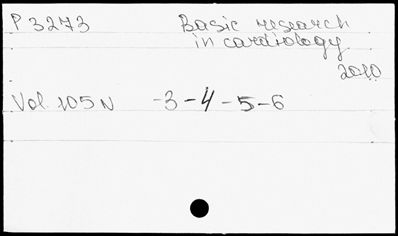 P 3273 Basic research
in cardiology
2010
Vol. 105 N -3-4-5-6